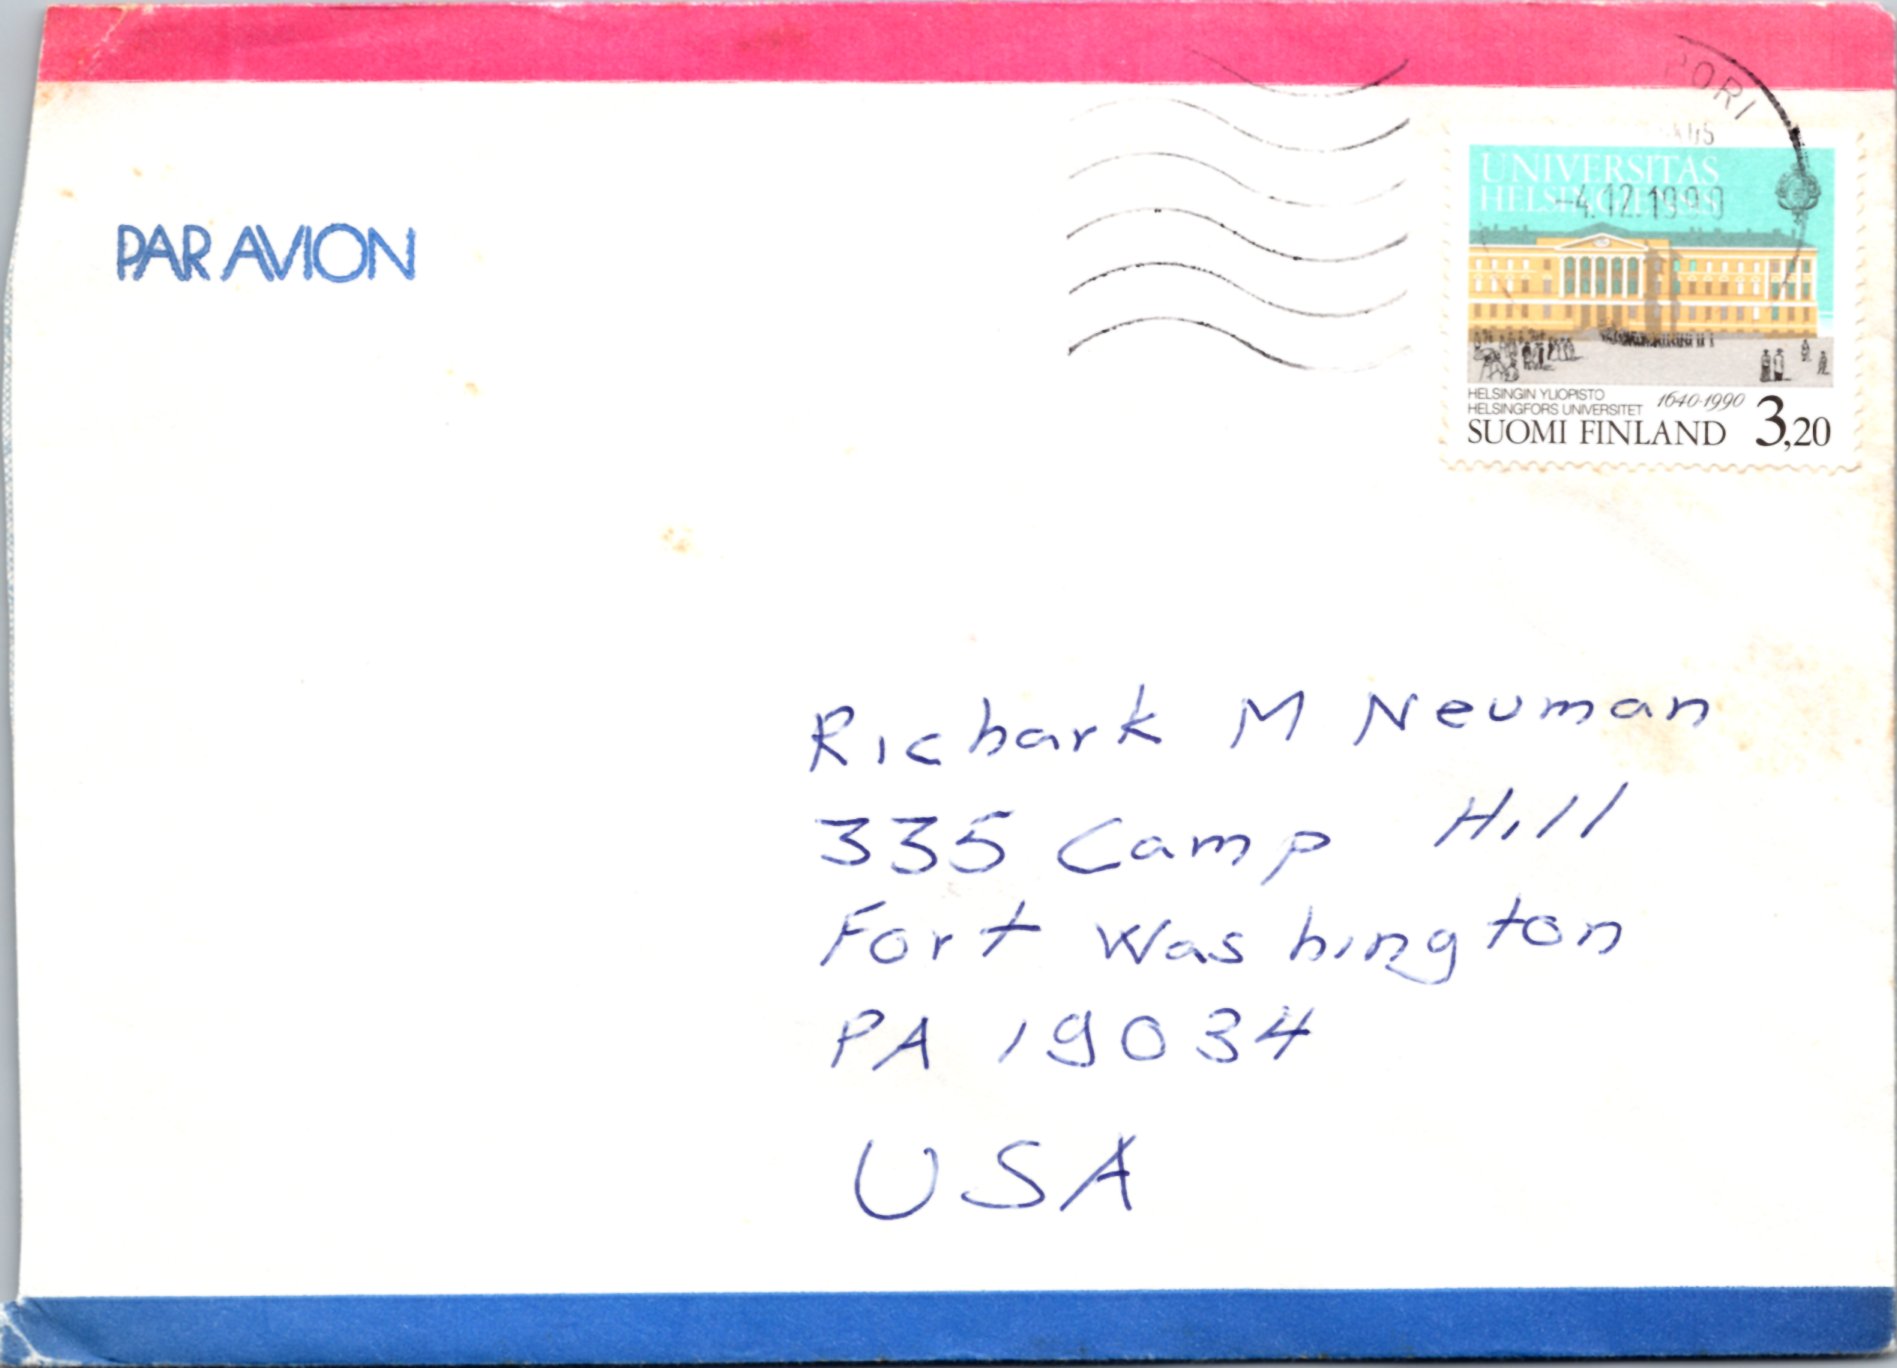 PAR AVION
PORI
-4.12.1990
UNIVERSITAS
HELSINGIENSIS
HELSINGIN YLIOPISTO
HELSINGFORS UNIVERSITET 1640-1990
SUOMI FINLAND 3,20
Richark M Neuman
335 Camp Hill
Fort Washington
PA 19034
USA